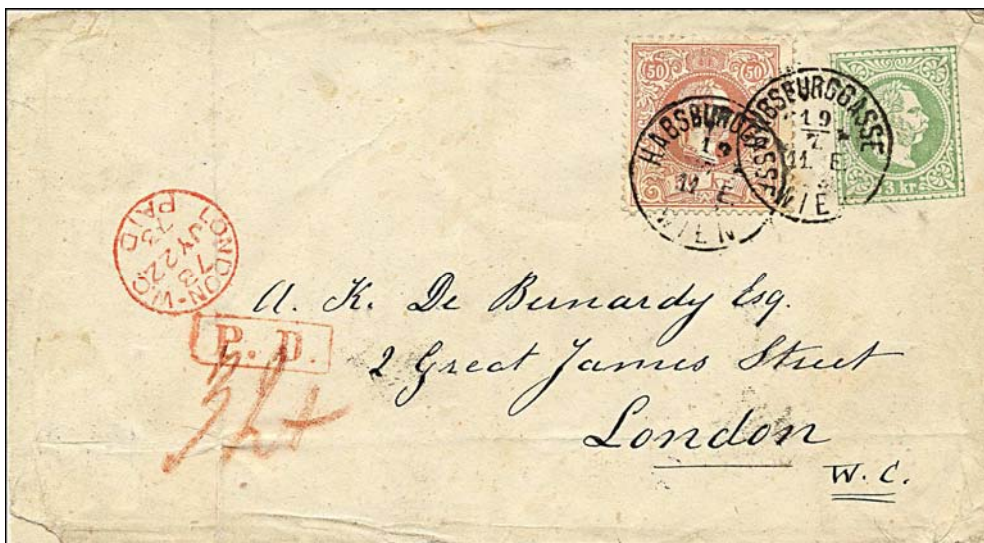 50 50
3 kr
HABSBURGGASSE
11. E
WIEN
HABSBURGGASSE
19
7
11. E
WIEN
LONDON-W.C
73
JY 22
73
PAID
P. D.
A. K. De Bernardy Esq.
2 Great James Street
London
W. C.